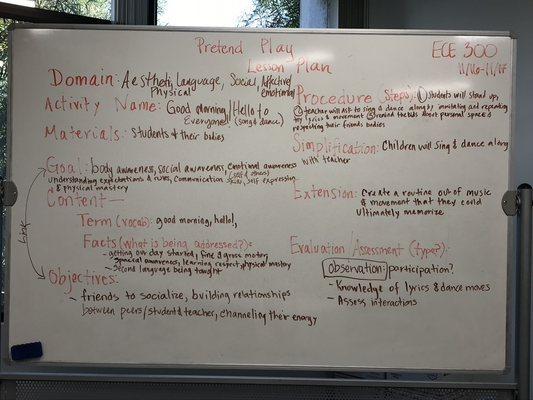 Pretend Play
Lesson Plan
ECE 300
11/16-11/17
Domain: Aesthetic, Language, Social, Affective/
Physical emotional
Activity Name: Good morning/Hello to
Everyone! (song & dance)
Materials: Students & their bodies
Goal: body awareness, social awareness, Emotional awareness
(self & others)
understanding expectations & rules, communication skills, self expression
& physical mastery
Content—
Term (vocab): good morning, hello,
Facts (what is being addressed?):
- getting our day started, fine & gross motor,
- spacial awareness, learning respect, physical mastery
- second language being taught
link
Objectives:
- friends to socialize, building relationships
between peers/student & teacher, channeling their energy
Procedure Steps: ① Students will stand up,
② teacher will ask to sing & dance along by imitating and repeating
my lyrics & movement ③ remind the kids about personal space &
respecting their friends bodies
Simplification: Children will sing & dance along
with teacher
Extension: Create a routine out of music
& movement that they could
ultimately memorize
Evaluation/Assessment (type?):
Observation: participation?
- Knowledge of lyrics & dance moves
- Assess interactions